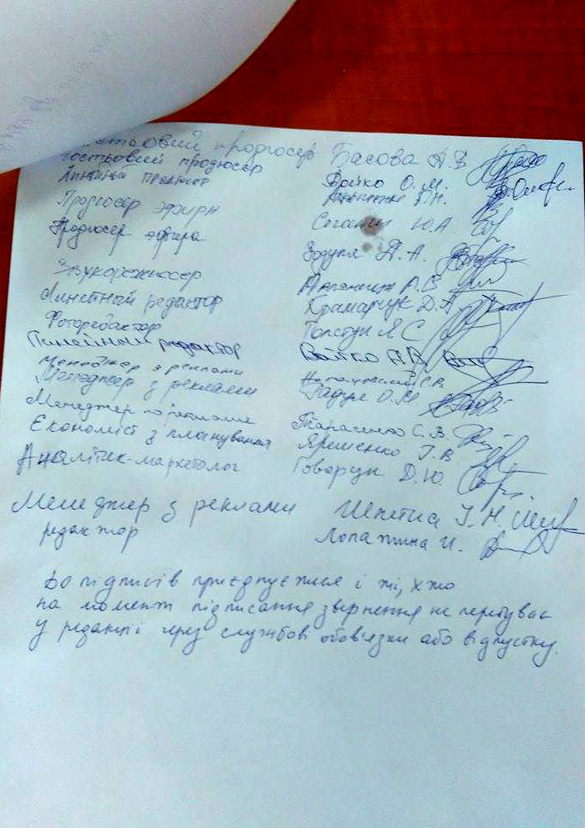 Гостьовий продюсер Басова А В
Гостьовий продюсер Бойко О. М.
Продюсер эфира Ю.А
Продюсер эфира Д. А.
Звукорежиссер А. С
Линейный редактор Крамарчук Д.А
Фоторедактор Толстун Я С
Линейный редактор Бойко
Менеджер з реклами
Менеджер з реклами О. М
Менеджер по рекламе Тарасенко С. В.
Економіст з планування Яременко І. В
Аналітик-маркетолог Говорун Д. Ю.
Менеджер з реклами Шпетна І. Н.
редактор Лопатина И.
До підписів приєднується і ті, хто
на момент підписання звернення не перебуває
у редакції через службові обов'язки або відпустку.